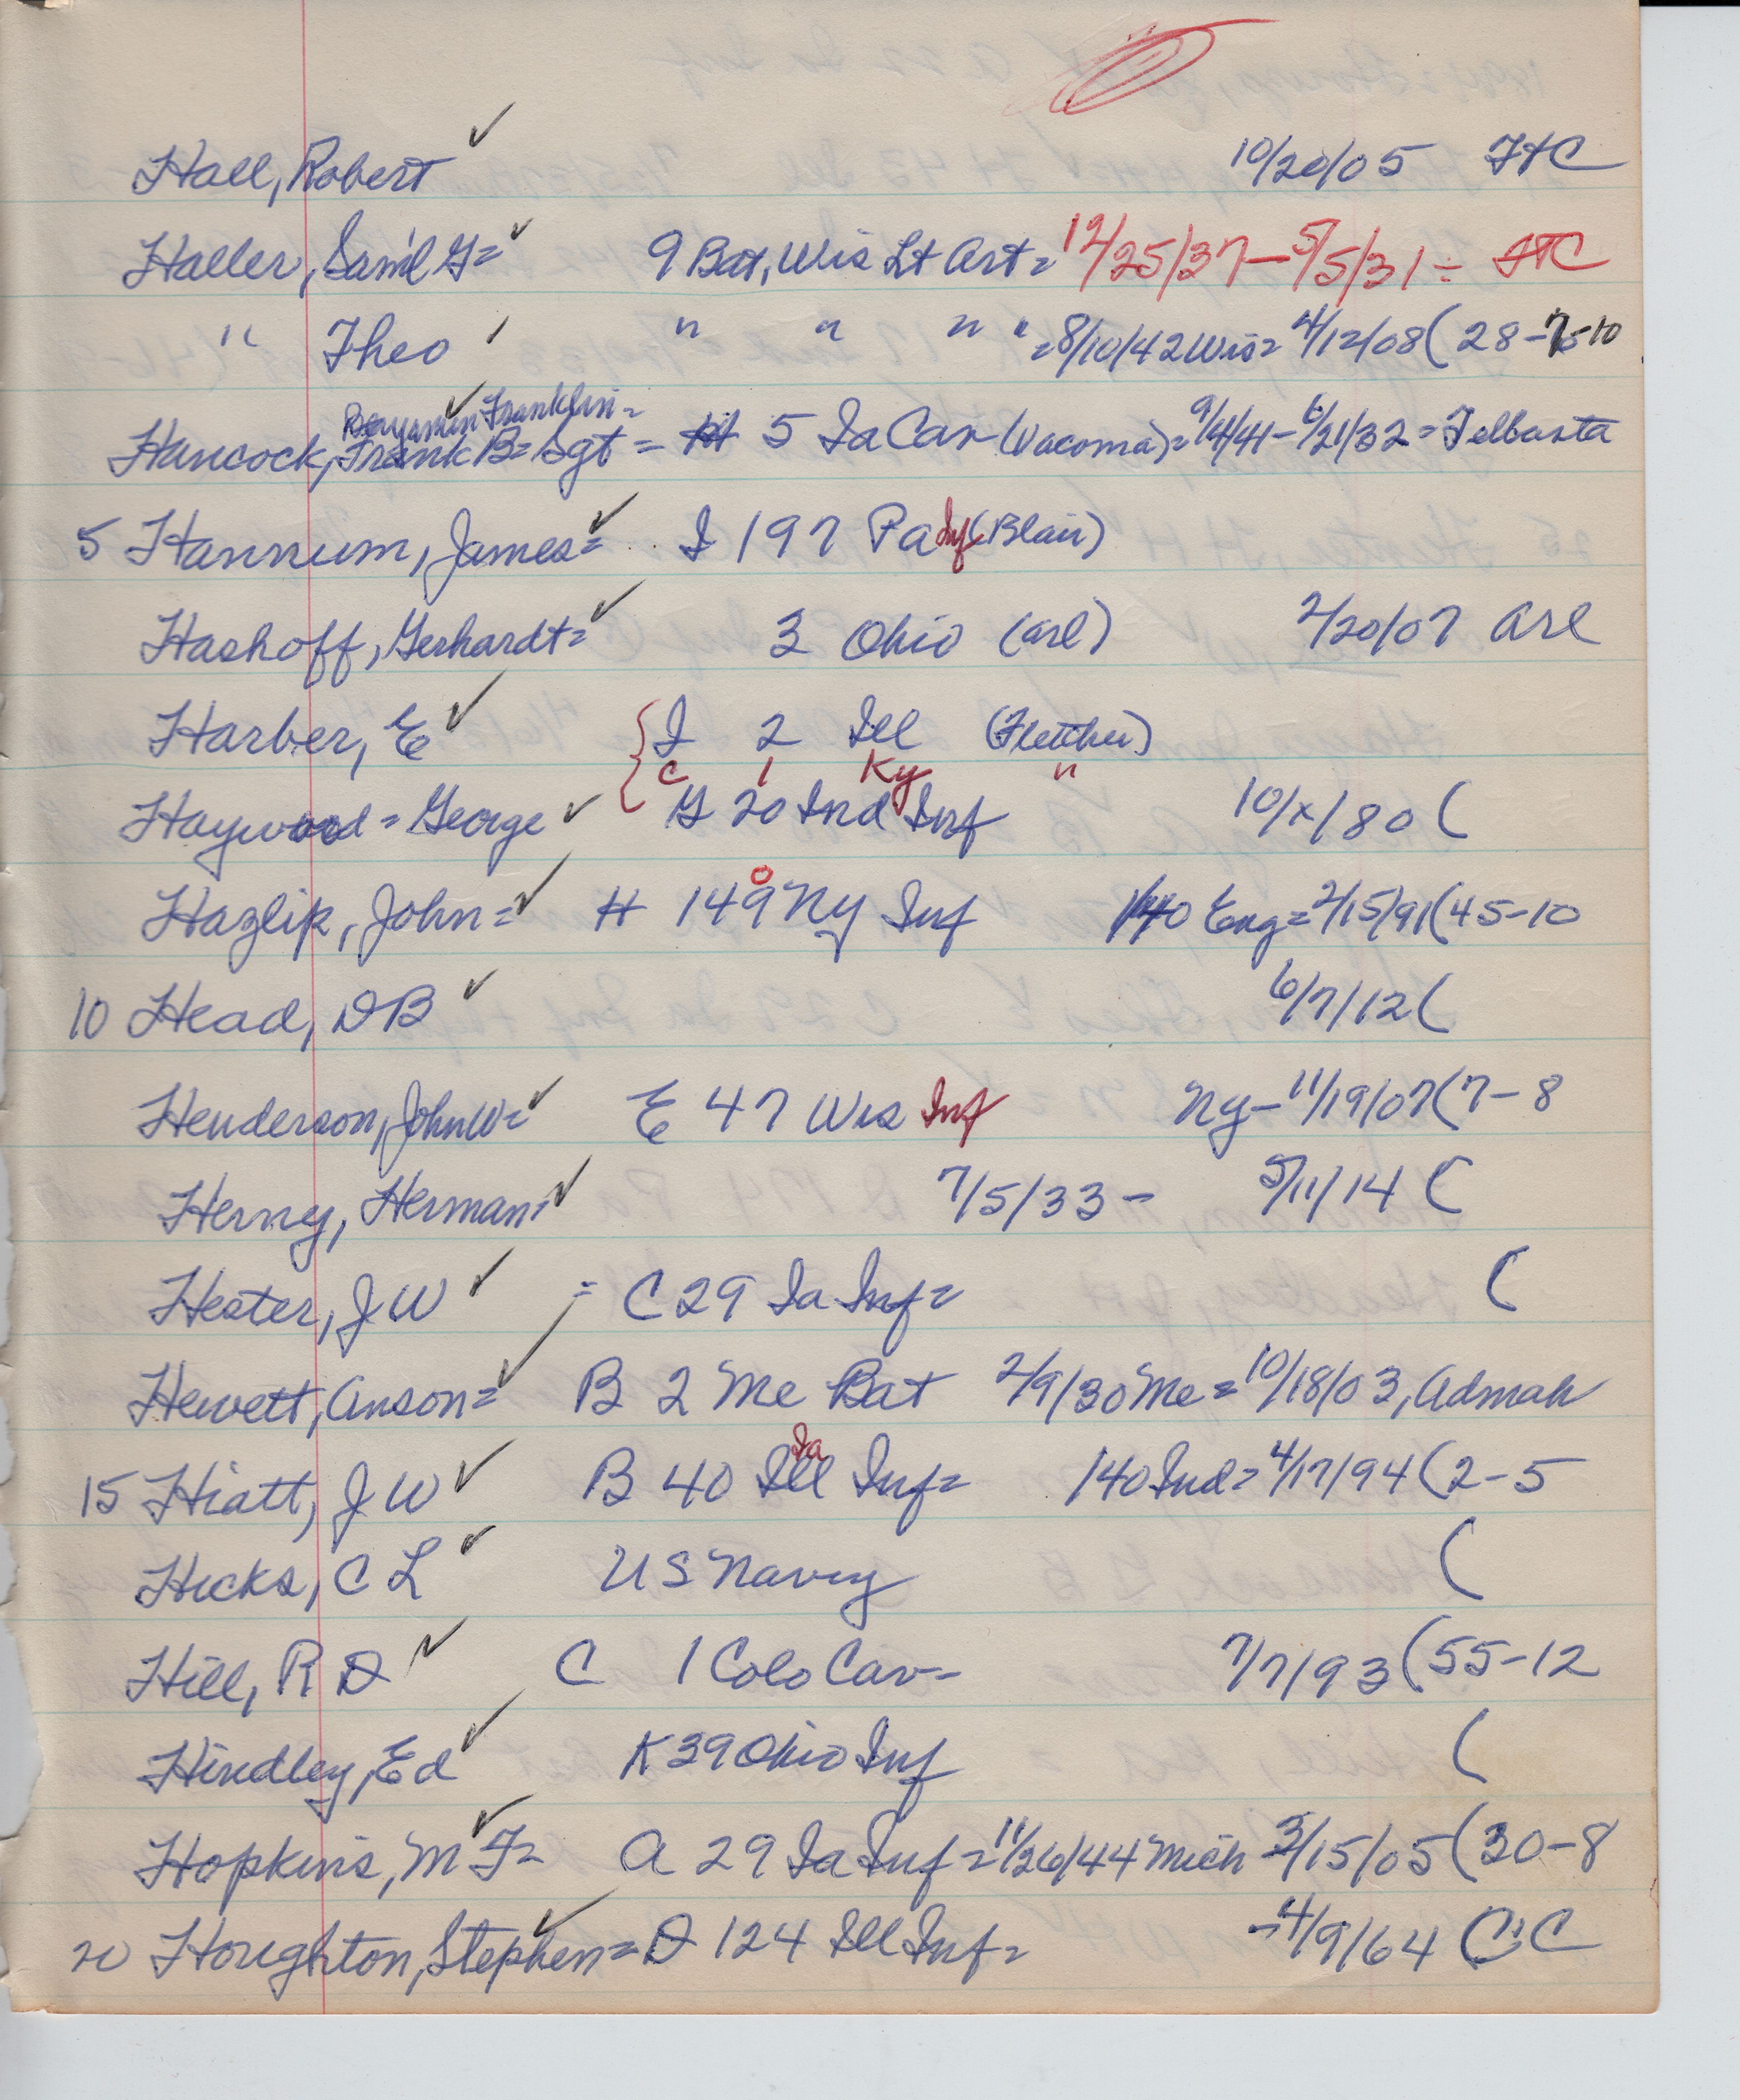 Hall, Robert 10/20/05 FTC
Haller, Sam'l G= 9 Bat, Wis Lt Art= 12/25/37-5/5/31 ÷ FTC
" Theo " " " " =8/10/42 Wis= 4/12/08( 28-75-10
Benjamin Franklin=
Hancock, Frank B= Sgt = H 5 Ia Cav (Vacoma)= 9/4/41-6/21/32= Telbasta
5 Hannum, James= I 197 Pa Inf (Blair)
Hashoff, Gerhardt= 3 Ohio (Arl) 2/20/07 Arl
Harber, E I 2 Ill (Fletcher)
C 1 Ky "
Haywood = George G 20 Ind Inf 10/x/80 (
0
Hazlip, John= H 149 Ny Inf 1140 Eng= 2/15/91(45-10
10 Head, D B 6/7/12(
Henderson, John W= E 47 Wis Inf Ny- 11/19/07(7-8
Herny, Herman= 7/5/33- 5/11/14 (
Hester, J W = C 29 Ia Inf= (
Hewett, Anson= B 2 Me Bat 2/9/30 Me= 10/18/03, Admah
Ia
15 Hiatt, J W B 40 Ill Inf= 140 Ind= 4/17/94(2-5
Hicks, C L U S Navy (
Hill, R D C 1 Colo Cav- 7/7/93(55-12
Hindley, Ed K 39 Ohio Inf (
Hopkins, M F= A 29 Ia Inf= 11/26/44 Mich 3/15/05(30-8
20 Houghton, Stephen= D 124 Ill Inf= -4/9/64 C:C